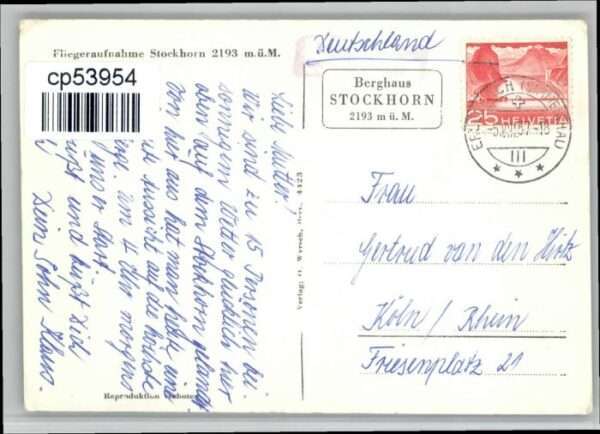 Fliegeraufnahme Stockhorn 2193 m.ü.M.
cp53954
Liebe Mutter!
Wir sind zu 15 Personen bei
sonnigem Wetter glücklich hier
oben auf dem Stockhorn gelandet
Von hier aus hat man
Aussicht auf die
um 4 Uhr morgens
unser Start.
und küßt Dich
Dein Sohn Klaus.
Reproduktion
Verlag: O. Wyrsch, Bern 4423
Deutschland
Berghaus
STOCKHORN
2193 m ü. M.
25 HELVETIA
III
Frau
Gertrud van den Hirtz
Köln / Rhein
Friesenplatz 21